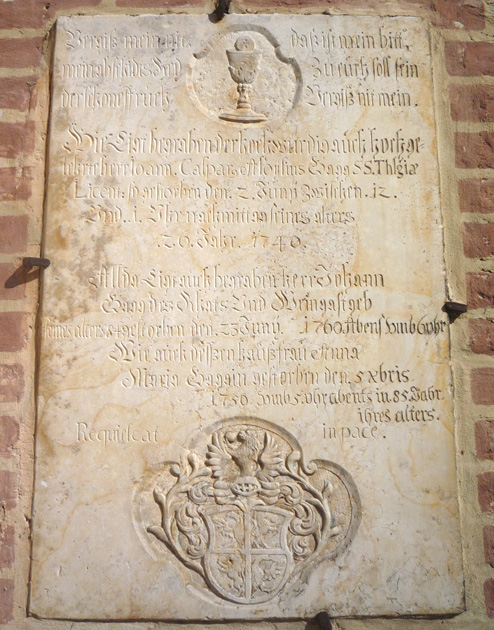 Vergiß mein nit. das ist mein bitt,
mein abschidts Zu euch soll sein
der schone spruch Vergiß nit mein.
Hir Ligt begraben der hochwürdig auch hochge-
lehrte herr Ioann. Caspar Aloysius Gagg SS. Thlgiæ
Licent: gestorben den. 2. Junij zwischen. 12.
Und. 1. Uhr nachmittag seines alters
26. Jahr. 1740.
Allda Ligt auch begraben herr Johann
Gagg des Raats Und Weingastgeb
seines alters gestorben den. 23 Junij. 1760. Abens umb 6 uhr
Wie auch dessen haußfrau Anna
Maria Gaggin gestorben den. 5 xbris
1756. umb 5. uhr abentz in 85. Jahr.
ihres alters.
Requiescat in pace.